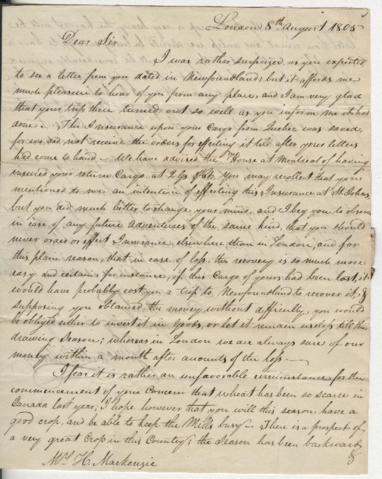 London 8th August 1805
Dear Sir
I was rather surprized as you expected
to see a letter from you dated in Newfoundland; but it affords me
much pleasure to hear of you from any place, and I am very glad
that your trip there turned out so well as you inform me it has
done. The Insurance upon your Cargo from Quebec was saved,
for we did not receive the orders for effecting it till after your letters
had come to hand. We have advised the House at Montreal of having
insured your return Cargo at 2 Gs. You may recollect that you
mentioned to me an intention of effecting this Insurance at St Johns,
but you did much better to change your mind, and I beg you to observe
in case of any future adventures of the same kind, that you should
never order or effect Insurance elsewhere than in London, and for
this plain reason, that in case of loss the recovery is so much more
easy and certain; for instance, if this Cargo of yours had been lost it
would have probably cost you a trip to Newfoundland to recover it, &
supposing you obtained the money without difficulty, you would
be obliged either to invest it in goods, or let it remain useless till the
drawing Season; whereas in London we are always sure of our
money within a month after accounts of the loss.
I fear it is rather an unfavorable circumstance for the
commencement of your Concern that wheat has been so scarce in
Canada last year; I hope however that you will this season have a
good crop, and be able to keep the Mills busy. There is a prospect of
a very great Crop in this Country; the Season has been backward
&
Mr H. Mackenzie